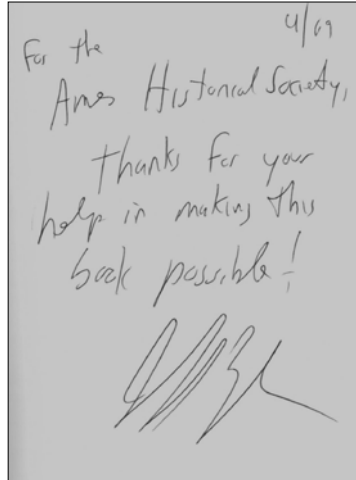 4/09
For the
Ames Historical Society,
Thanks for your
help in making this
book possible!